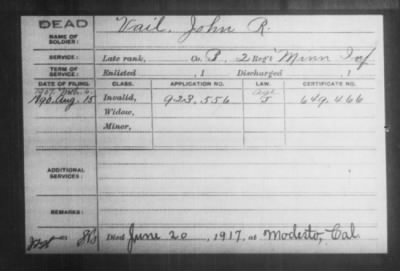 DEAD
NAME OF SOLDIER: Vail, John R.
SERVICE: Late rank, Co. 2 Reg't Minn Inf
TERM OF SERVICE: Enlisted , 1 Discharged , 1
DATE OF FILING. CLASS. APPLICATION NO. LAW. CERTIFICATE NO.
1907
1890 Aug. 15 Invalid, 923.556 J 649.466
Widow,
Minor,
ADDITIONAL SERVICES:
REMARKS:
Died June 20, 1917, at Modesto, Cal